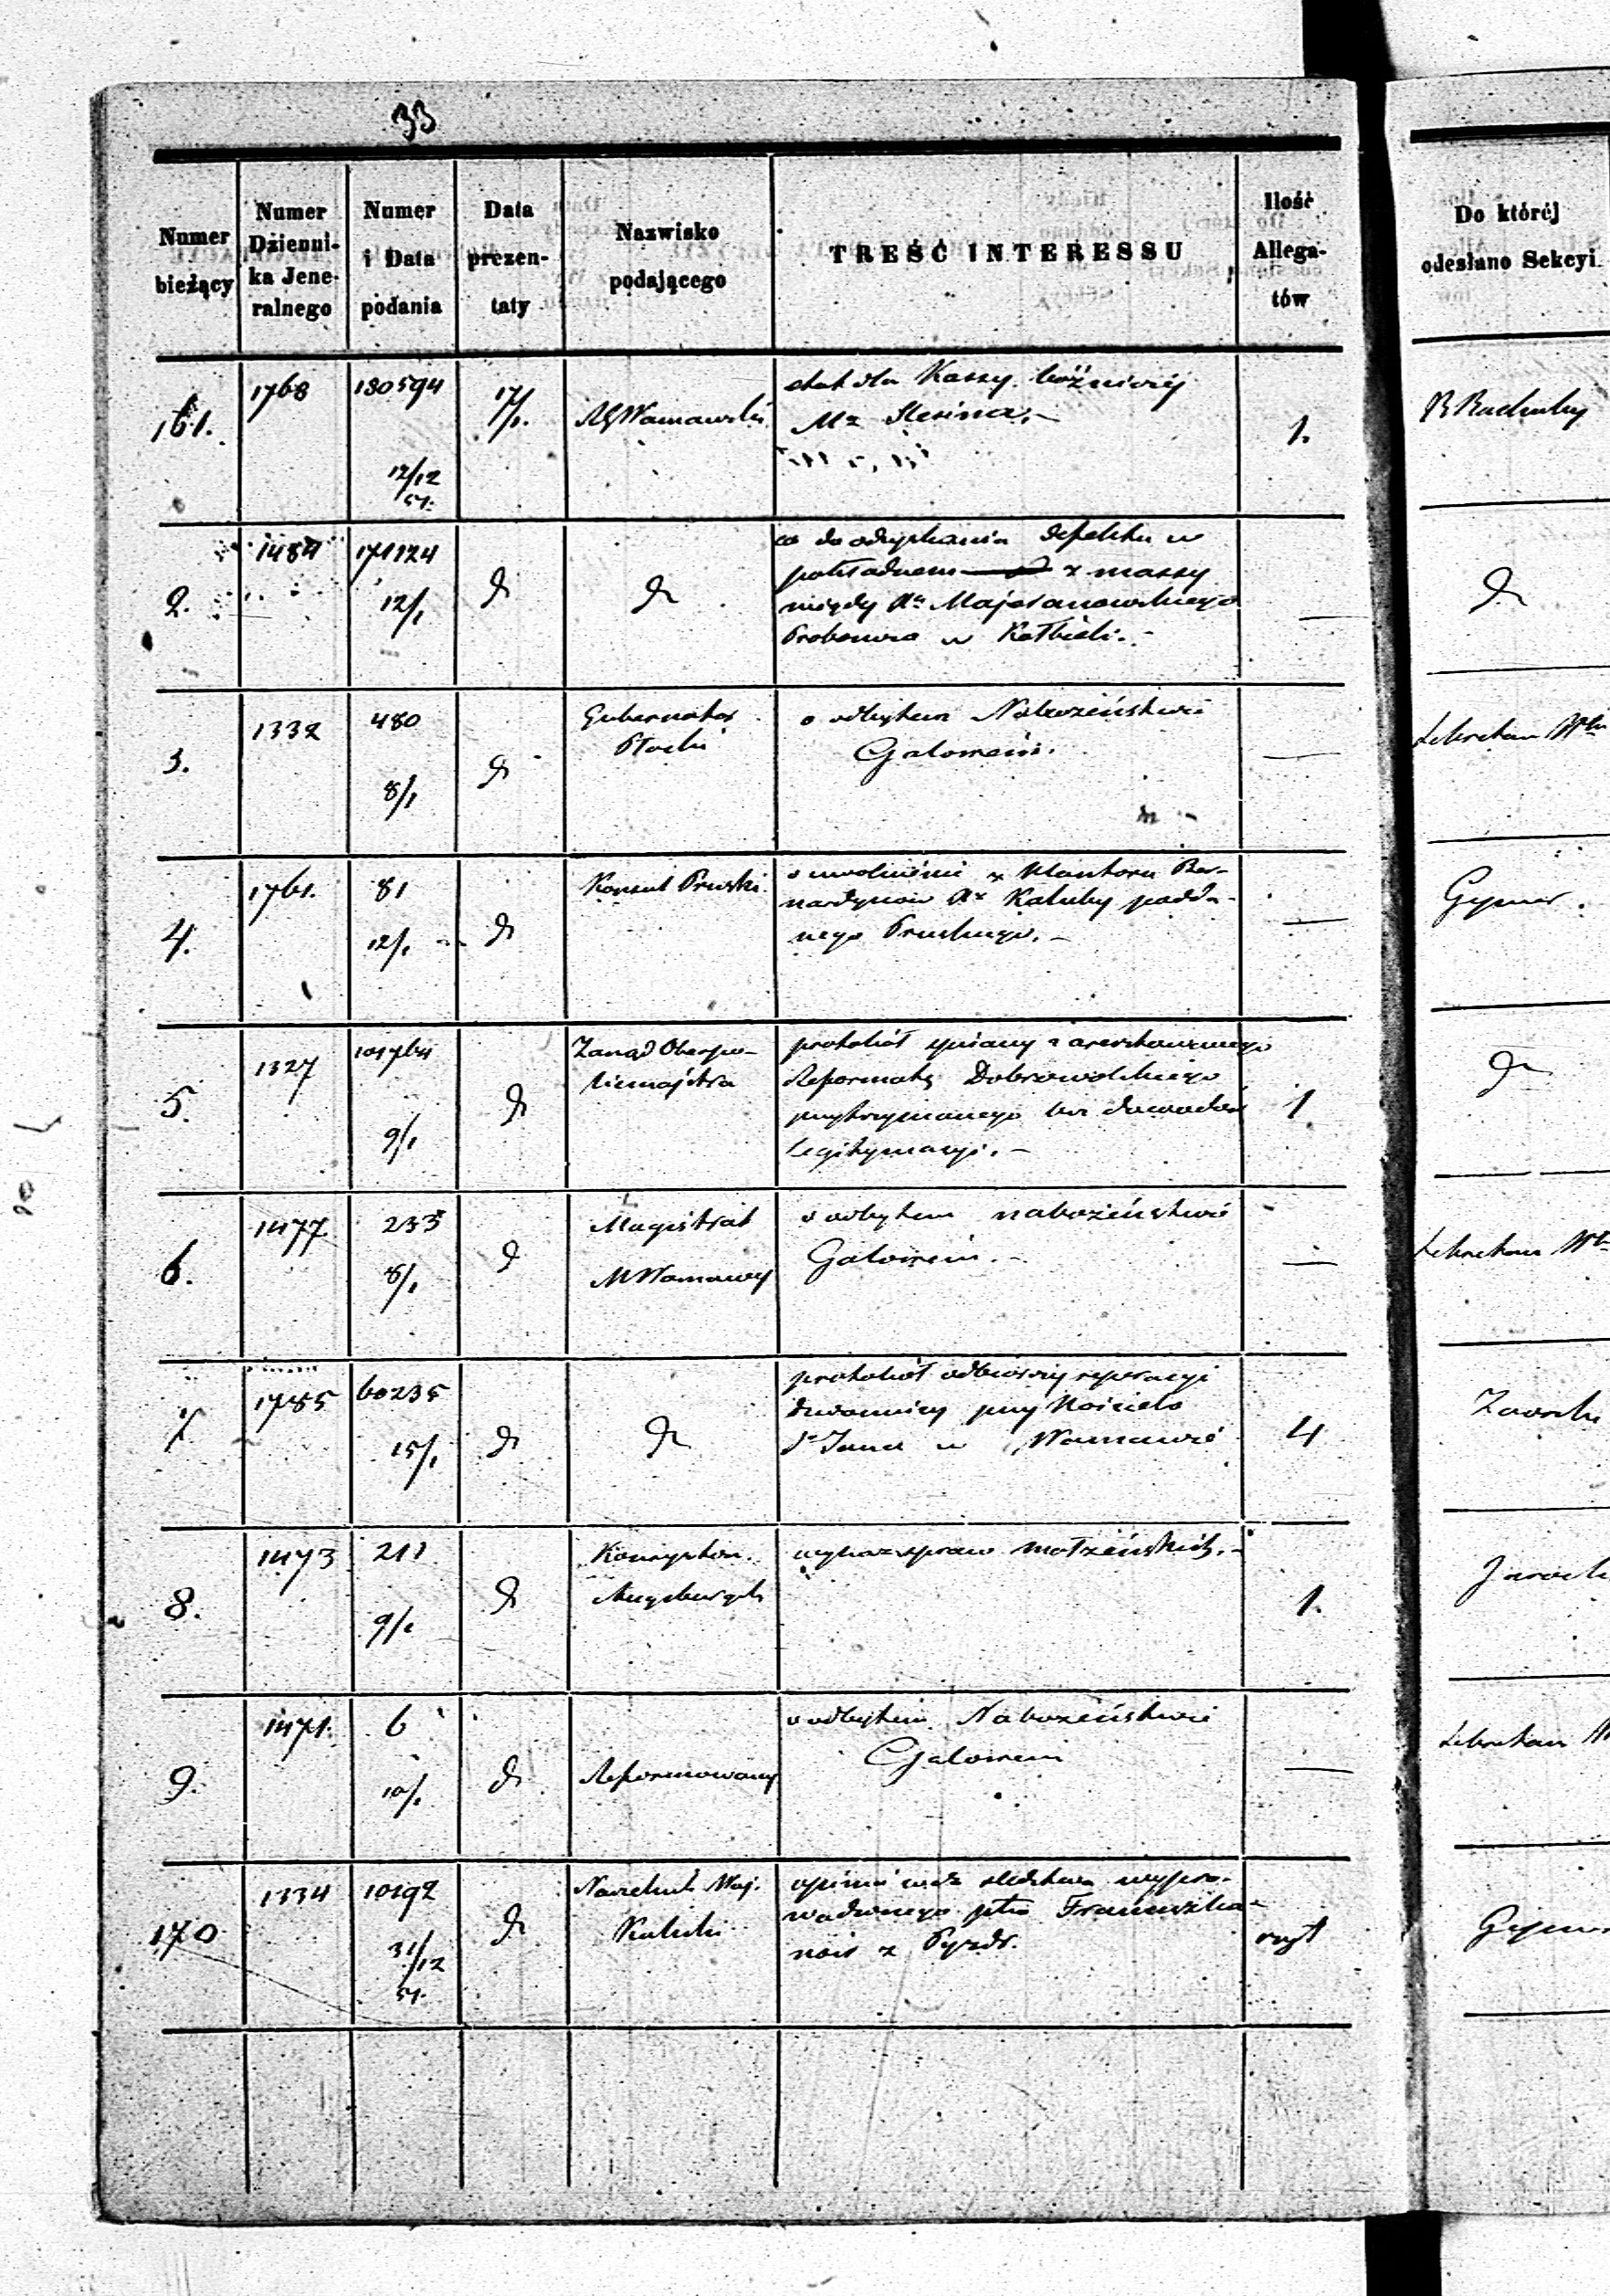 33
Numer bieżący
Numer Dziennika Jeneralnego
Numer i Data podania
Data prezentaty
Nazwisko podającego
TREŚĆ INTERESSU
Ilość Allegatów
Do któréj odesłano Sekcyi
161.
1768
130594
12/12
51.
17/1.
etat dla Kassy bóźniczéj
Mta Slesina.
1.
2.
1484
171124
12/1
dt
dt
co do odzyskania defektu w
z massy
między Majeranowskiego
Proboszcza w Kołbieli.
—
dt
3.
1332
480
8/1
dt
Gubernator
Płocki
o odbytem Nabożeństwie
Galowem.
—
4.
1761.
81
12/1
dt
Konsul Pruski
o uwolnienie z Klasztoru Ber-
nardynów Xa Kaluby podda-
nego Pruskiego.
—
5.
1327
101764
9/1
dt
Zarząd Oberpo-
licmajstra
protokół spisany z aresztowanego
Reformatę Dobrowolskiego
przytrzymanego bez dowodów
Legitymacyi.
1
dt
6.
1477
233
8/1
dt
Magistrat
M Warszawy
o odbytem nabożeństwie
Galowem.
—
7
1785
60235
15/1
dt
dt
protokół odbiorczy reperacyi
dzwonnicy przy Kościele
St Jana w Warszawie
4
8.
1473
211
9/1
dt
Konsystorz
Augsburgski
wykaz spraw małżeńskich.
1.
9.
1471.
6
10/1
dt
Reformowany
o odbytem Nabożeństwie
Galowem
—
170
1334
10192
31/12
51.
dt
Naczelnik Woj.
Kaliski
opinia wraz śledztwa wypro-
wadzonego ptko Franciszka-
nów z Pyzdr.